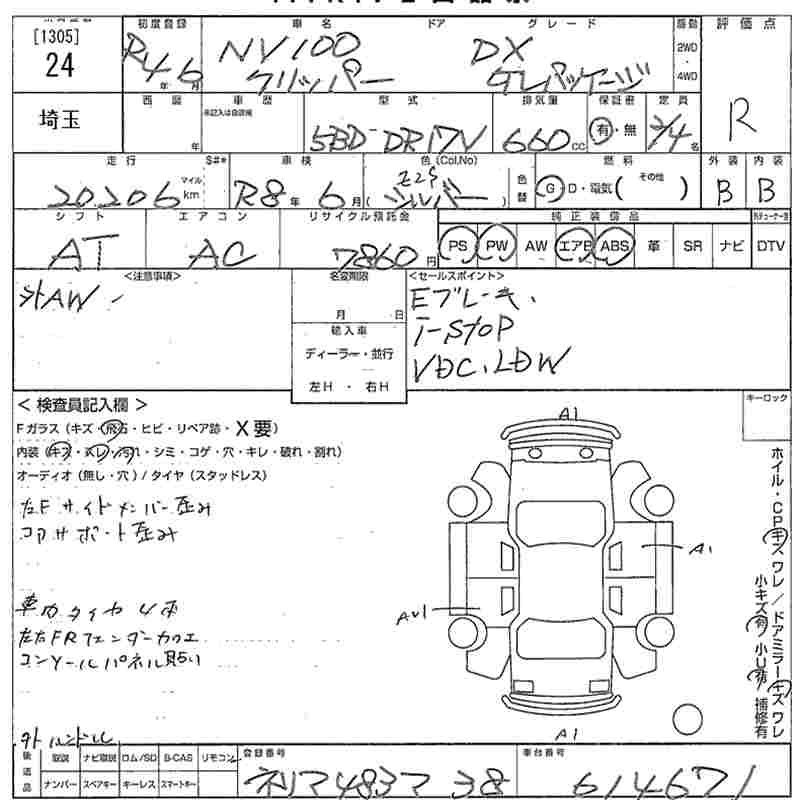 [1305]
24
初度登録
R4年6月
車名
NV100
クリッパー
ドア
グレード
DX
GLパッケージ
駆動
2WD
・
4WD
評価点
R
埼玉
西暦
年
車歴
未記入は自家用
型式
5BD-DR17V
排気量
660cc
保証書
有・無
定員
2/4名
走行
20,206
マイル
km
S#*
車検
R8年6月
色(Col,No)
Z2S
シルバー
色替
燃料
G・D・電気( その他 )
外装
B
内装
B
シフト
AT
エアコン
AC
リサイクル預託金
7860円
純正装備品
PS PW AW エアB ABS 革 SR ナビ DTV
<注意事項>
外AW
名変期限
月 日
輸入車
ディーラー・並行
左H ・ 右H
<セールスポイント>
Eブレーキ、
I-STOP
VDC、LDW
キーロック
<検査員記入欄>
Fガラス(キズ・飛石・ヒビ・リペア跡・X要)
内装(キズ・スレ・汚れ・シミ・コゲ・穴・キレ・破れ・割れ)
オーディオ(無し・穴)/タイヤ(スタッドレス)
左Fサイドメンバー歪み
コアサポート歪み
車内タイヤ4本
左右FRフェンダーカウエ
コンソールパネル貼い
外ハンドル
A1
A1
AU1
A1
ホイル・CPキズ ワレ/ドアミラーキズ ワレ
小キズ有 小U有 補修有
後送品
取説 ナビ取説 ロム/SD B-CAS リモコン
ナンバー スペアキー キーレス スマートキー
登録番号
车台番号
614671